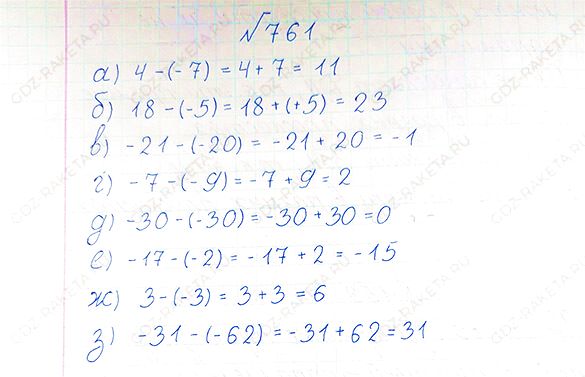 №761
а) 4 - (-7) = 4 + 7 = 11
б) 18 - (-5) = 18 + (+5) = 23
в) -21 - (-20) = -21 + 20 = -1
г) -7 - (-9) = -7 + 9 = 2
д) -30 - (-30) = -30 + 30 = 0
е) -17 - (-2) = -17 + 2 = -15
ж) 3 - (-3) = 3 + 3 = 6
з) -31 - (-62) = -31 + 62 = 31
GDZ-RAKETA.RU